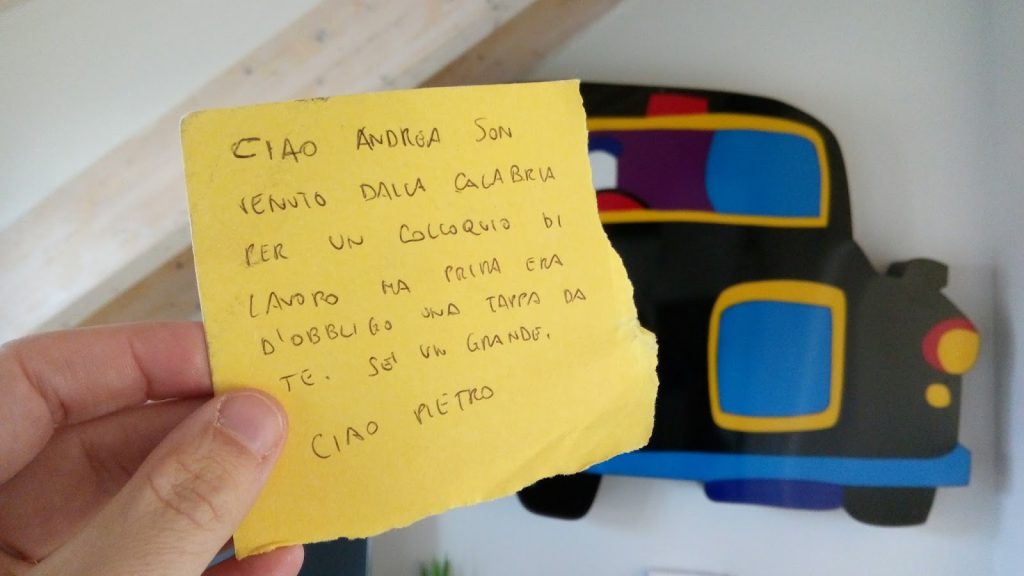 CIAO ANDREA SON
VENUTO DALLA CALABRIA
PER UN COLLOQUIO DI
LAVORO MA PRIMA ERA
D'OBBLIGO UNA TAPPA DA
TE. SEI UN GRANDE.
CIAO PIETRO